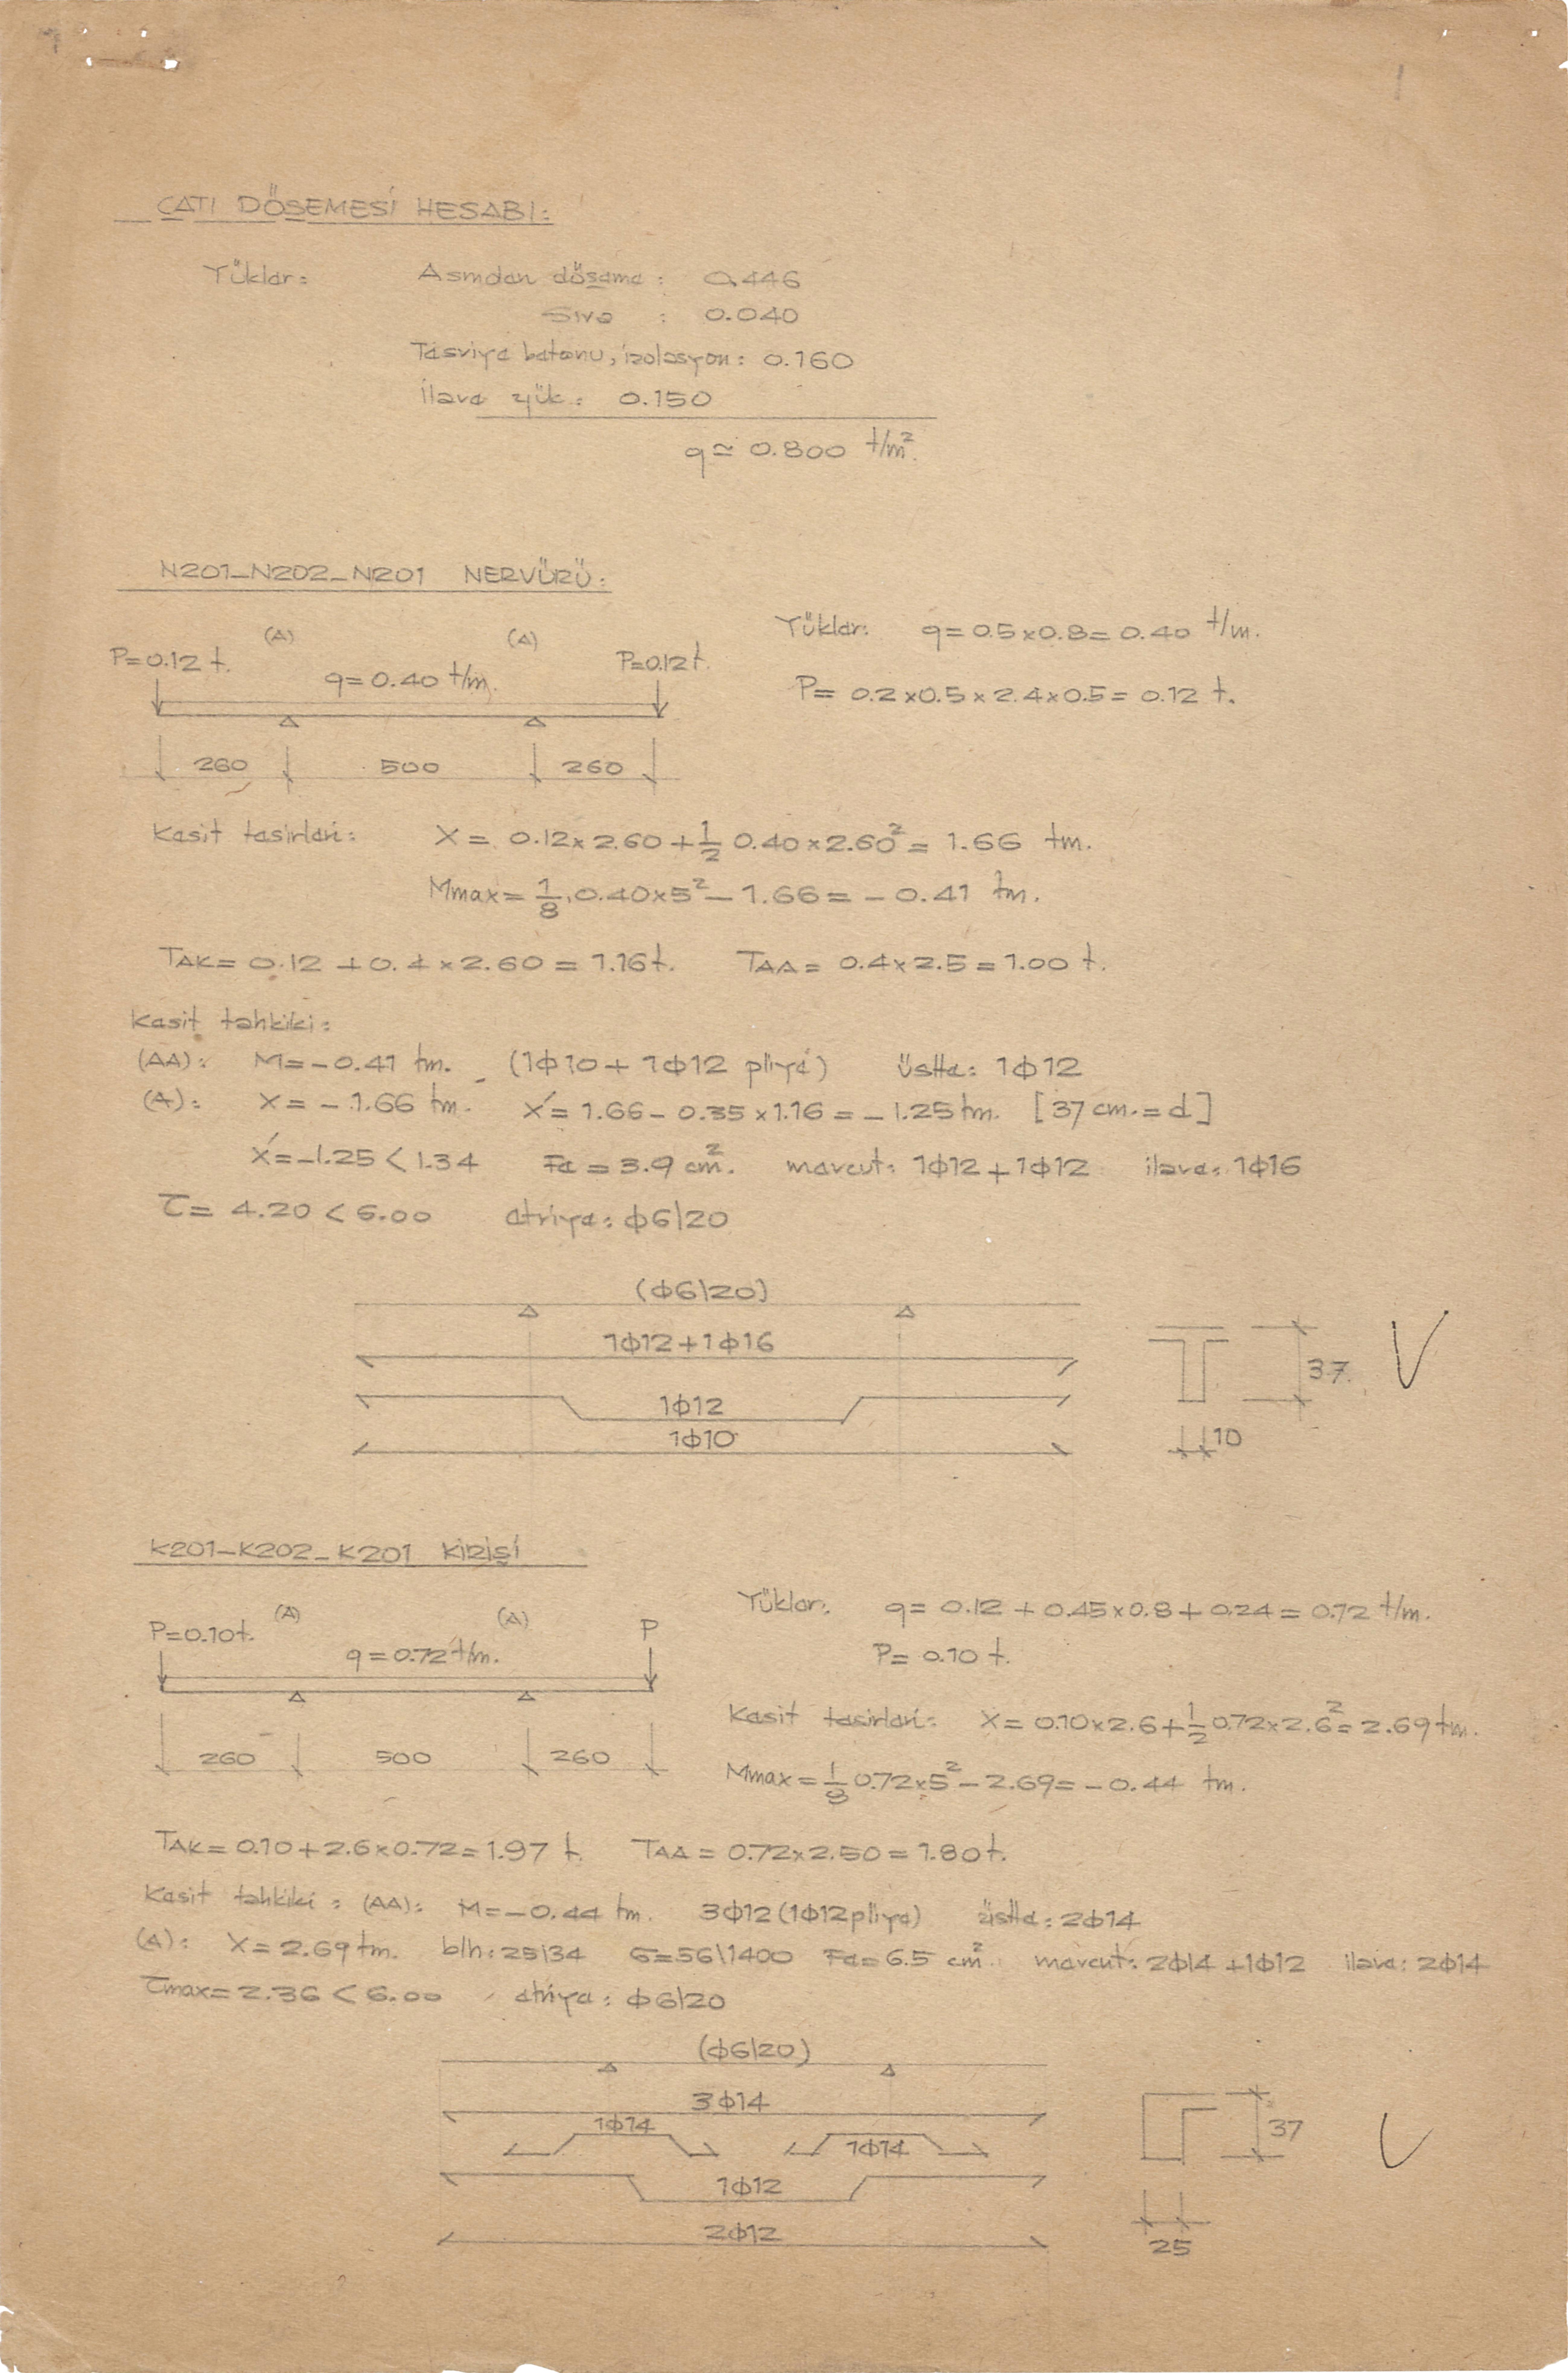 ÇATI DÖŞEMESİ HESABI:
Yükler: Asmolen döşeme: 0.446
Sıva : 0.040
Tesviye betonu, izolasyon: 0.160
İlave yük: 0.150
q ≃ 0.800 t/m².
N201_N202_N201 NERVÜRÜ:
(A) (A)
P=0.12 t. q=0.40 t/m. P=0.12 t.
260 500 260
Yükler: q=0.5x0.8=0.40 t/m.
P= 0.2x0.5x2.4x0.5=0.12 t.
Kesit tesirleri: X= 0.12x2.60+1/2 0.40x2.60²=1.66 tm.
Mmax=1/8.0.40x5²_1.66=_0.41 tm.
TAK=0.12+0.4x2.60=1.16t. TAA=0.4x2.5=1.00 t.
Kesit tahkiki:
(AA): M=-0.41 tm. (1ϕ10+1ϕ12 pliye) üstte: 1ϕ12
(A): X=-1.66 tm. X'=1.66-0.35x1.16=-1.25tm. [37cm.=d]
X'=-1.25<1.34 Fe=3.9 cm². mevcut: 1ϕ12+1ϕ12 ilave: 1ϕ16
τ= 4.20<6.00 etriye: ϕ6\20
(ϕ6\20)
1ϕ12+1ϕ16
1ϕ12
1ϕ10
37
10
K201_K202_K201 KİRİŞİ
(A) (A)
P=0.10t. q=0.72 t/m. P
260 500 260
Yükler: q= 0.12+0.45x0.8+0.24=0.72 t/m.
P= 0.10 t.
Kesit tesirleri: X=0.10x2.6+1/2 0.72x2.6²=2.69tm.
Mmax=1/8 0.72x5²-2.69=-0.44 tm.
TAK=0.10+2.6x0.72=1.97 t. TAA=0.72x2.50=1.80t.
Kesit tahkiki: (AA): M=-0.44 tm. 3ϕ12(1ϕ12pliye) üstte: 2ϕ14
(A): X=2.69tm. b\h:25\34 σ=56\1400 Fe=6.5 cm². mevcut: 2ϕ14+1ϕ12 ilave: 2ϕ14
τmax=2.36<6.00 etriye: ϕ6\20
(ϕ6\20)
3ϕ14
1ϕ14 1ϕ14
1ϕ12
2ϕ12
37
25